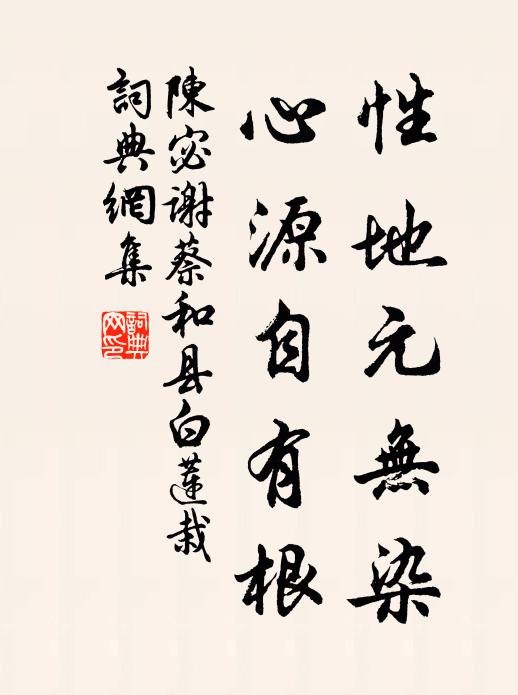 性地元無染
心源自有根
陳宓谢蔡和县白蓮栽
詞典網集